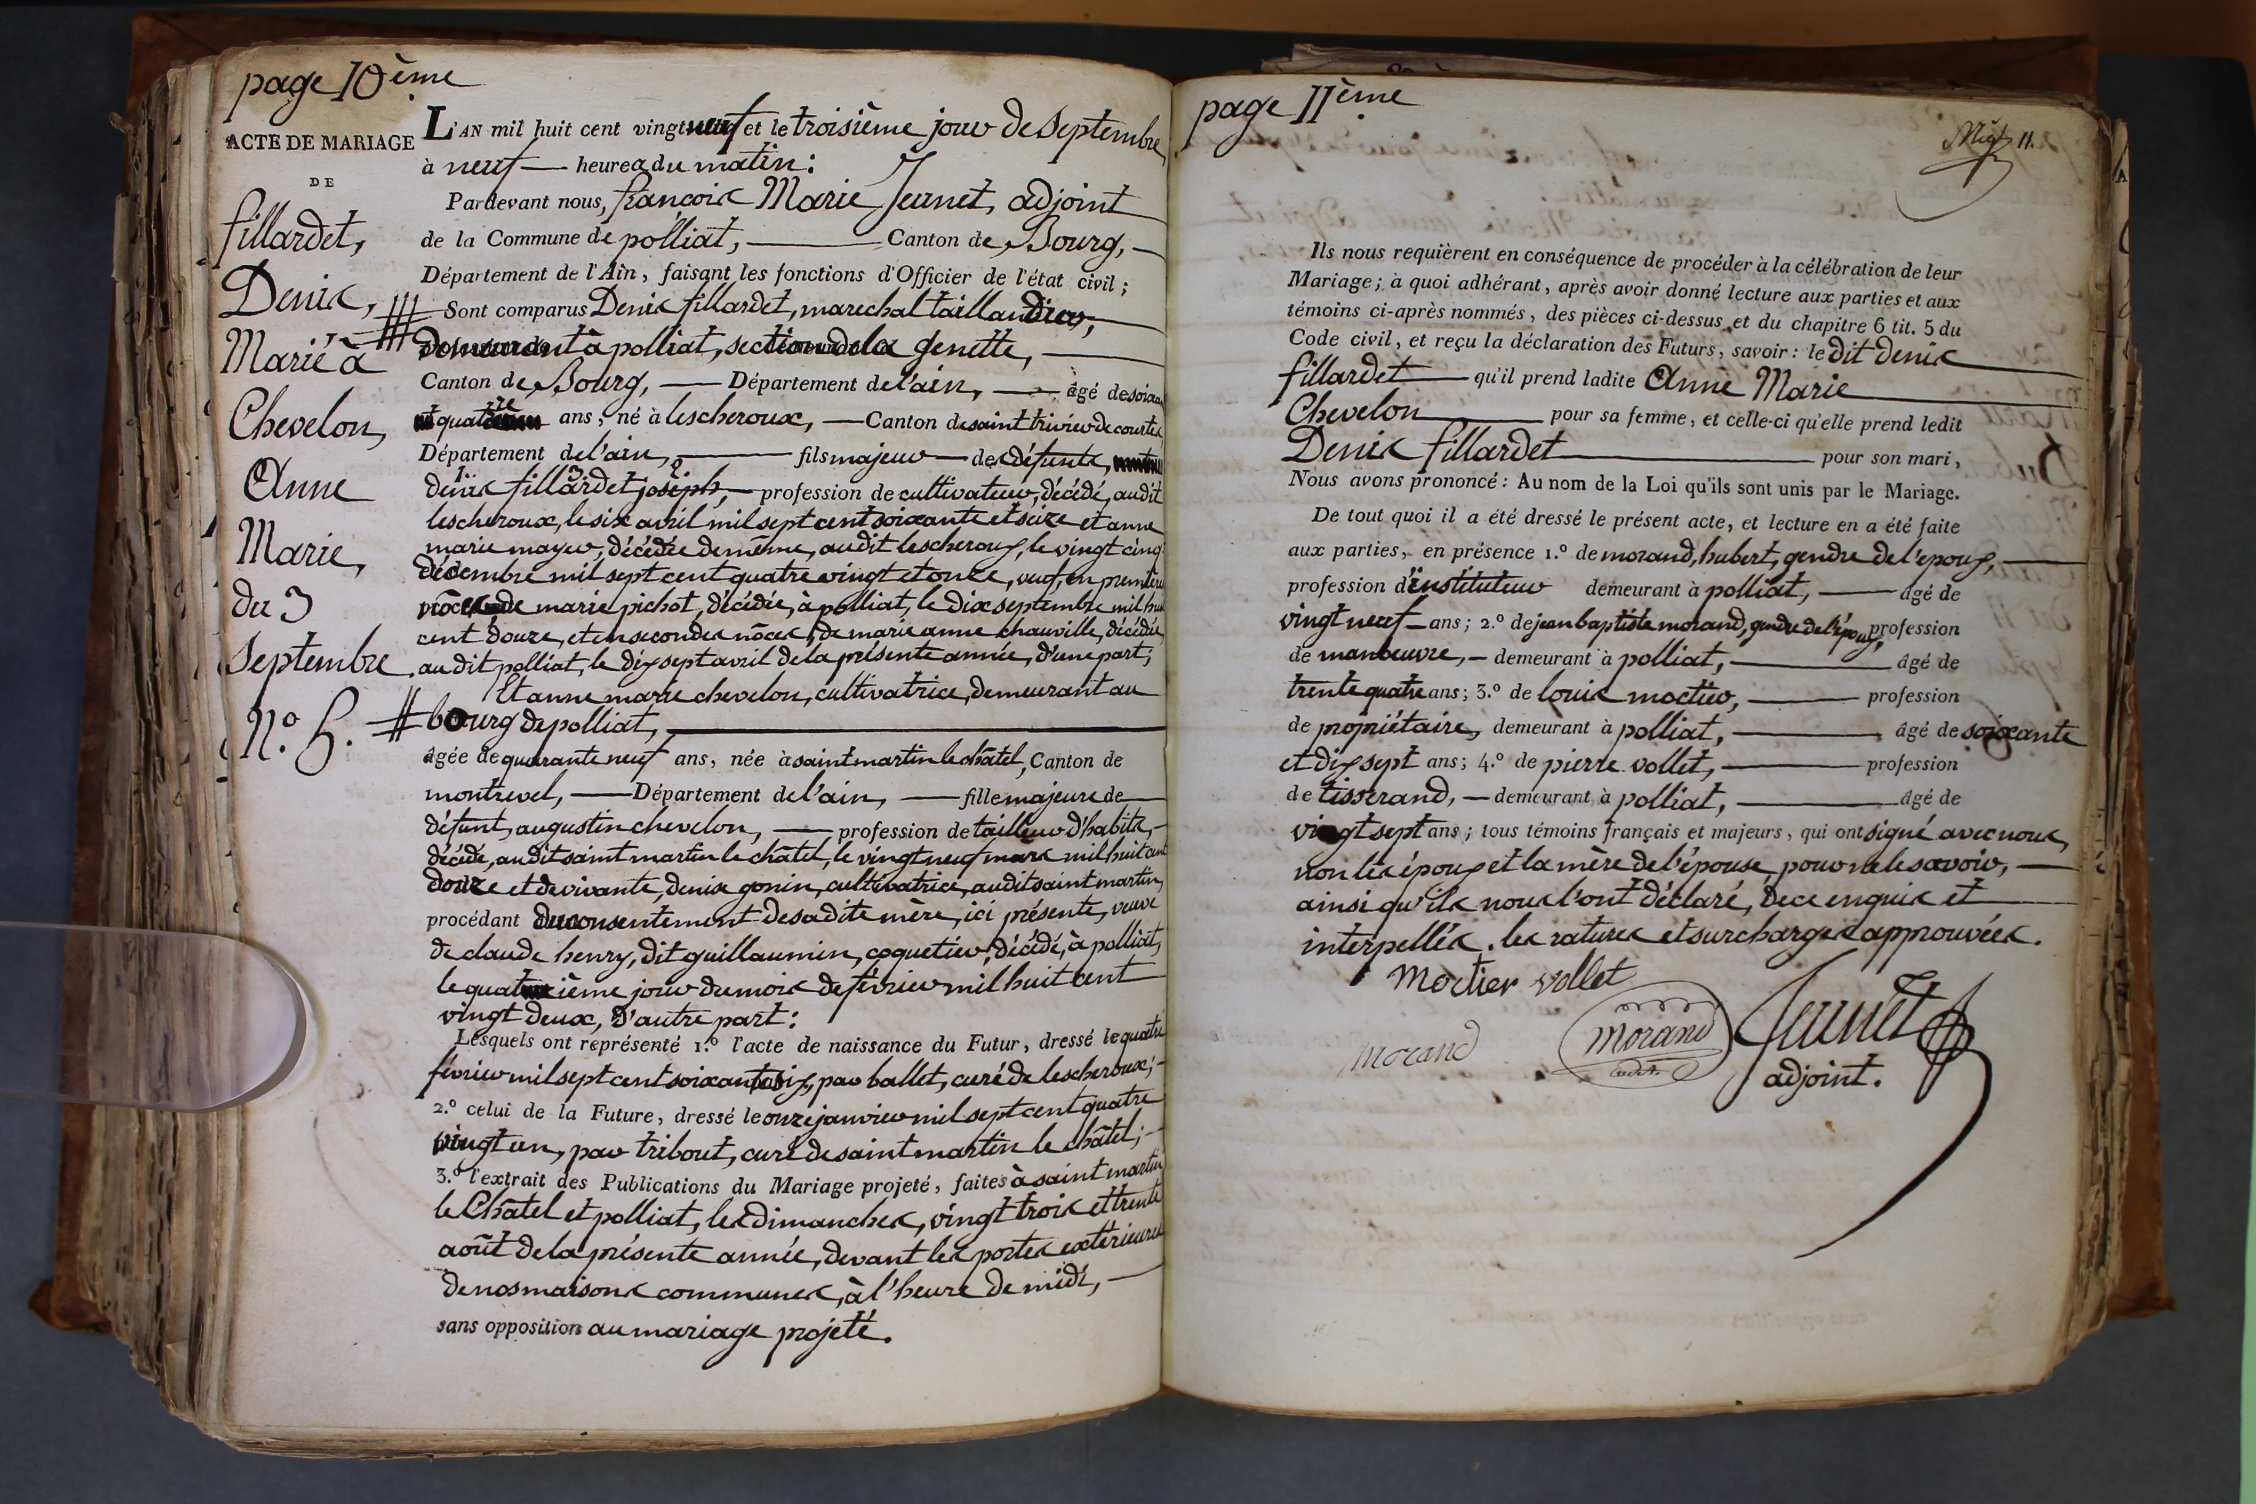 page 10ème
ACTE DE MARIAGE
DE
fillardet,
Denis,
Marié à
Chevelon,
Anne
Marie,
du 3
Septembre
N.º 5.
L'AN mil huit cent vingt neuf et le troisième jour de Septembre,
à neuf heures du matin :
Pardevant nous, françois Marie Jeunet, adjoint
de la Commune de polliat, Canton de Bourg,
Département de l'Ain, faisant les fonctions d'Officier de l'état civil ;
Sont comparus Denis fillardet, marechal taillandier,
Demeurant à polliat, section de la genette,
Canton de Bourg, Département de l'ain, âgé de soixante
quatre ans, né à lescheroux, Canton de saint trivier de courtes
Département de l'ain, fils majeur des défunts,
denis fillardet joseph, profession de cultivateur, décédé, audit
lescheroux, le six avril mil sept cent soixante et seize et anne
marie mayer, décédée de même, audit lescheroux, le vingt cinq
décembre mil sept cent quatre vingt et onze, veuf, en premières
nôces, de marie pichot, décédée, à polliat, le dix septembre mil huit
cent douze, et en secondes nôces, de marie anne chauville, décédée
au dit polliat, le dix sept avril de la présente année, d'une part ;
Et anne marie chevelon, cultivatrice, demeurant au
bourg de polliat,
âgée de quarante neuf ans, née à saint martin le châtel, Canton de
montrevel, Département de l'ain, fille majeure de
défunt, augustin chevelon, profession de tailleur d'habits,
décédé, audit saint martin le châtel, le vingt neuf mars mil huit cent
douze et de vivante, denise gonin, cultivatrice, audit saint martin,
procédant du consentement de sa dite mère, ici présente, veuve
de claude henry, dit guillaumin, coquetier, décédé, à polliat,
le quatorzième jour du mois de février mil huit cent
vingt deux, D'autre part :
Lesquels ont représenté 1.º l'acte de naissance du Futur, dressé le quatre
février mil sept cent soixante six, par ballet, curé de lescheroux ;
2.º celui de la Future, dressé le onze janvier mil sept cent quatre
vingt un, par tribout, curé de saint martin le châtel ;
3.º l'extrait des Publications du Mariage projeté, faites à saint martin
le Châtel et polliat, les dimanches, vingt trois et trente
août de la présente année, devant les portes extérieures
de nos maisons communes, à l'heure de midi,
sans opposition au mariage projeté.
page 11ème
11.
Ils nous requièrent en conséquence de procéder à la célébration de leur
Mariage ; à quoi adhérant, après avoir donné lecture aux parties et aux
témoins ci-après nommés, des pièces ci-dessus et du chapitre 6 tit. 5 du
Code civil, et reçu la déclaration des Futurs, savoir : le dit denis
fillardet qu'il prend ladite Anne Marie
Chevelon pour sa femme, et celle-ci qu'elle prend ledit
Denis fillardet pour son mari,
Nous avons prononcé : Au nom de la Loi qu'ils sont unis par le Mariage.
De tout quoi il a été dressé le présent acte, et lecture en a été faite
aux parties, en présence 1.º de morand, hubert, gendre de l'époux,
profession d'instituteur demeurant à polliat, âgé de
vingt neuf ans ; 2.º de jean baptiste morand, gendre de l'époux, profession
de manœuvre, demeurant à polliat, âgé de
trente quatre ans ; 3.º de louis moctier, profession
de propriétaire, demeurant à polliat, âgé de soixante
et dix sept ans ; 4.º de pierre vollet, profession
de tisserand, demeurant à polliat, âgé de
vingt sept ans ; tous témoins français et majeurs, qui ont signé avec nous,
non les époux et la mère de l'épouse, pour ne le savoir,
ainsi qu'ils nous l'ont déclaré, de ce enquis et
interpellés. les ratures et surcharges approuvées.
moctier vollet
morand morand Jeunet
adjoint.